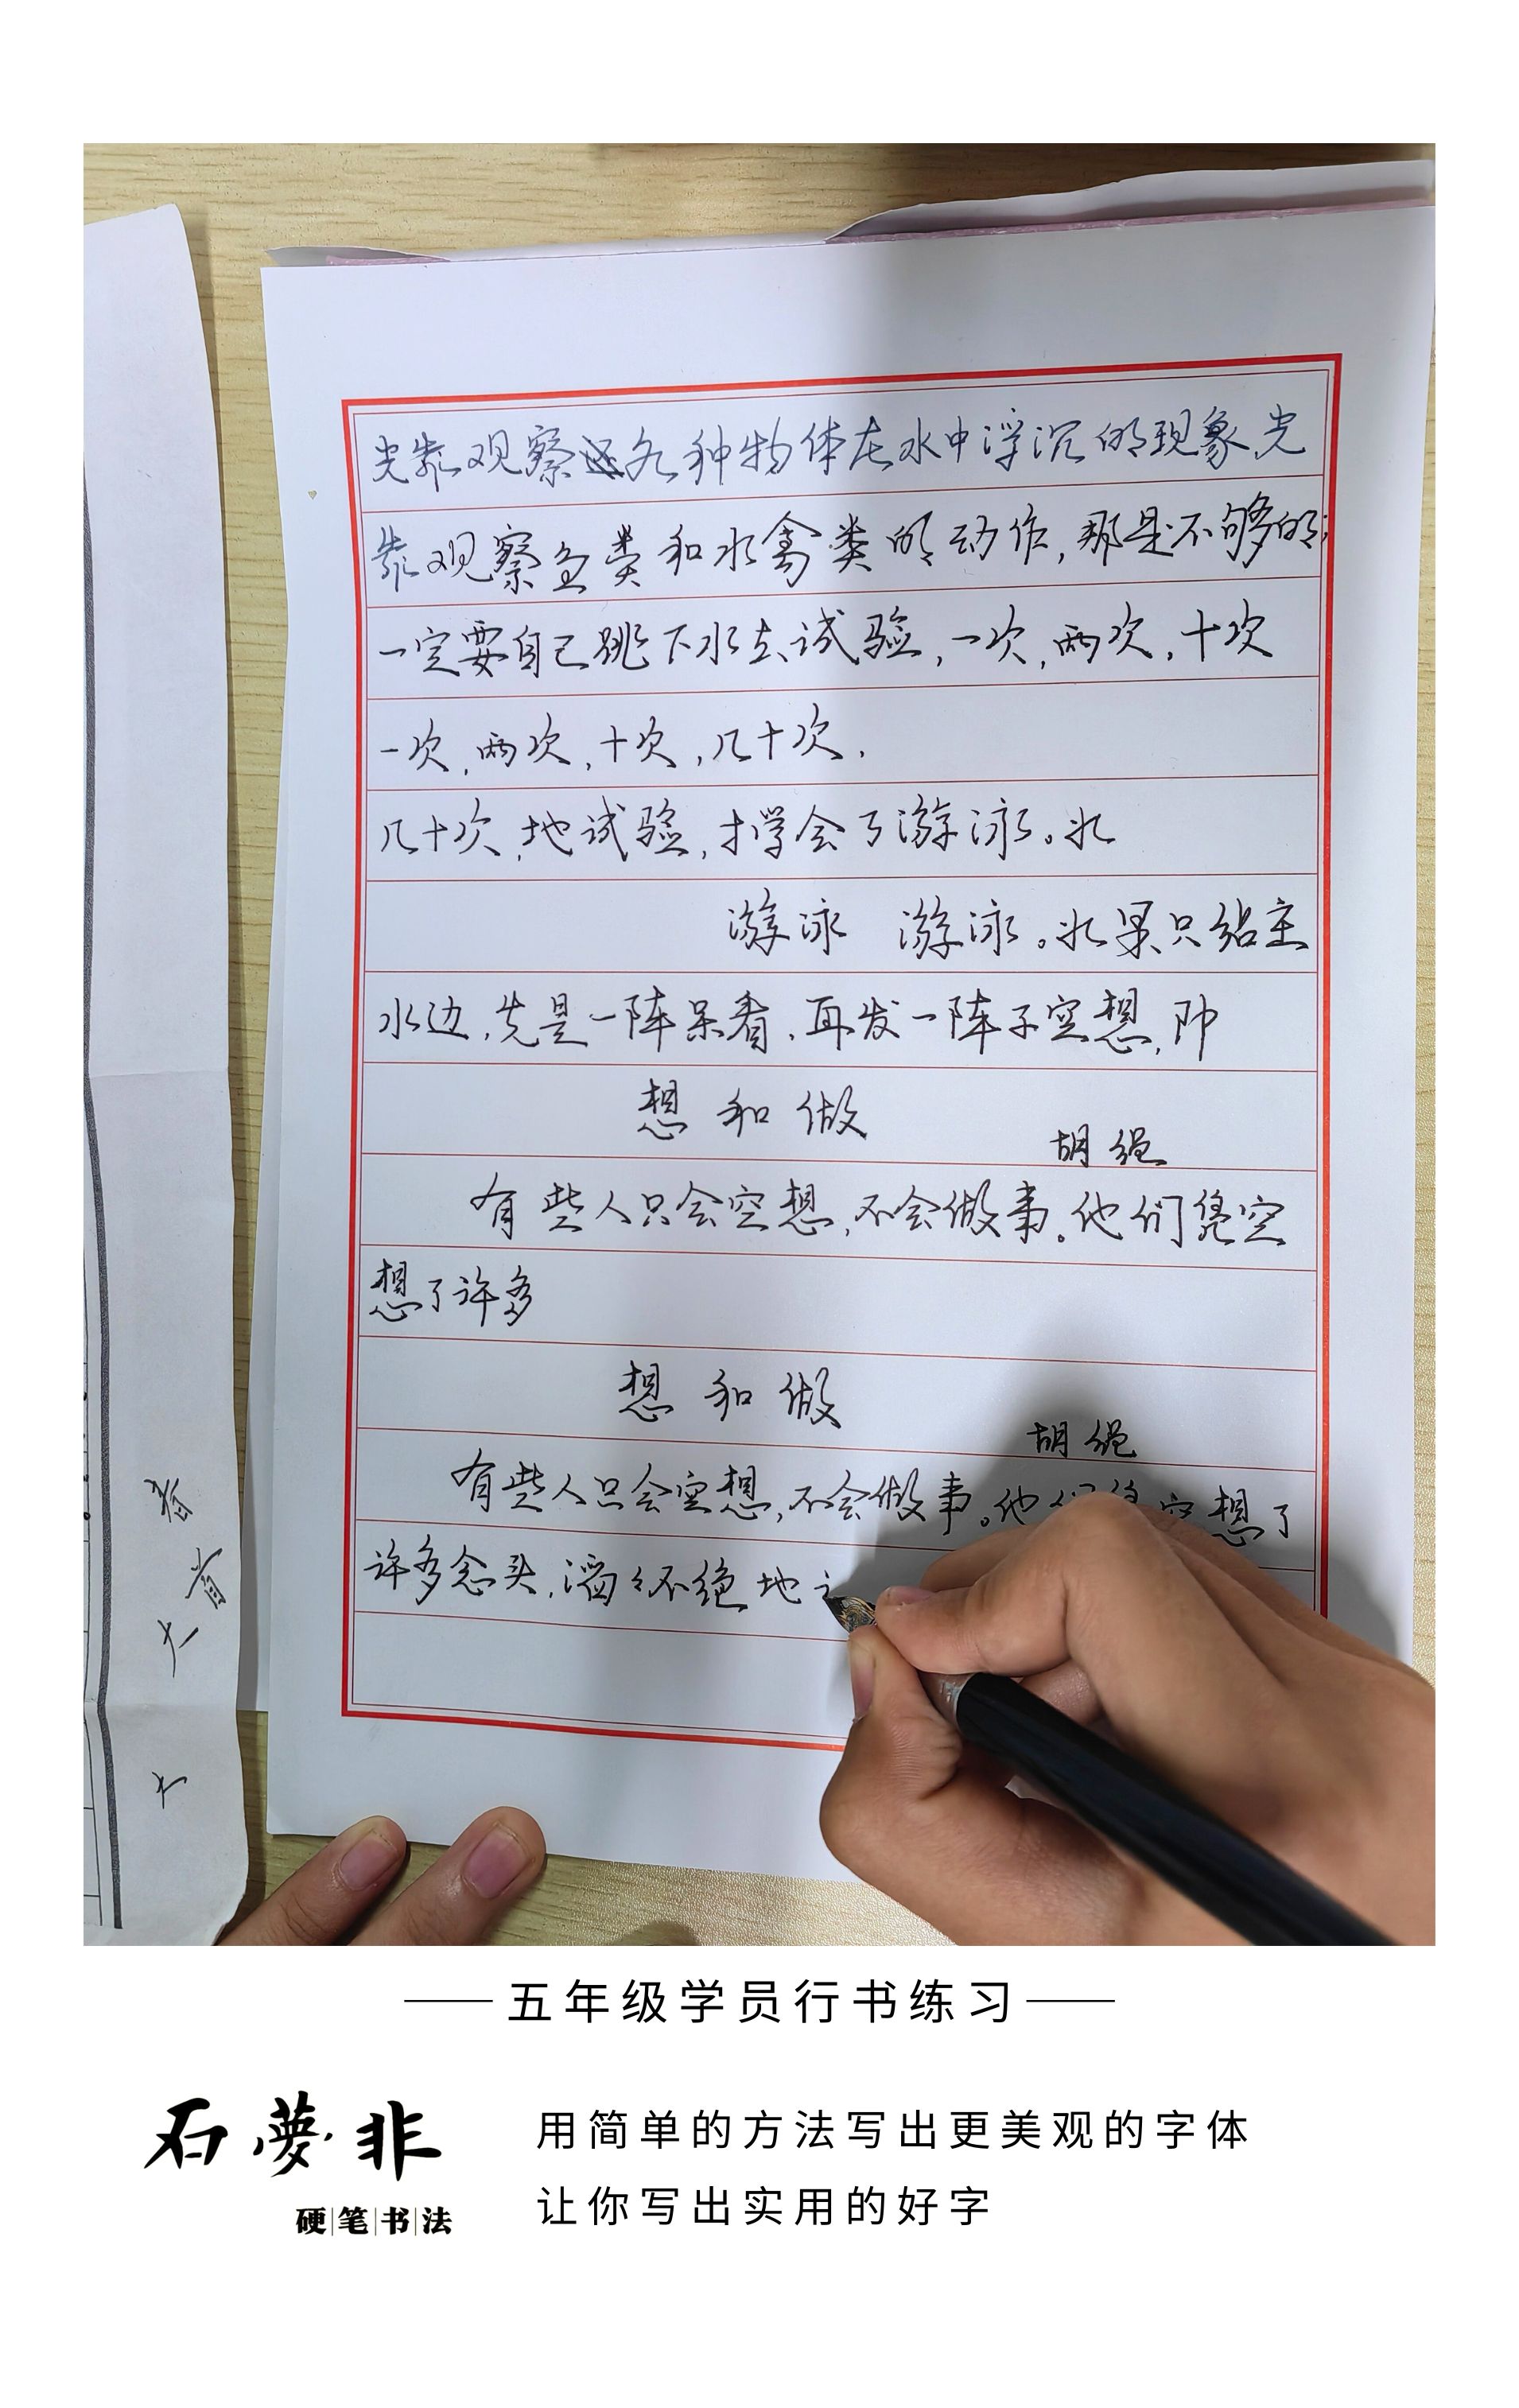 光靠观察各种物体在水中浮沉的现象,光
靠观察鱼类和水禽类的动作,那是不够的;
一定要自己跳下水去试验,一次,两次,十次
一次,两次,十次,几十次,
几十次,地试验,才学会了游泳。如
游泳 游泳。如果只站在
水边,先是一阵呆看,再发一阵子空想,即
想和做
胡绳
有些人只会空想,不会做事。他们凭空
想了许多
想和做
胡绳
有些人只会空想,不会做事。他们凭空想了
许多念头,滔々不绝地
春
大
五年级学员行书练习
石夢非
硬笔书法
用简单的方法写出更美观的字体
让你写出实用的好字